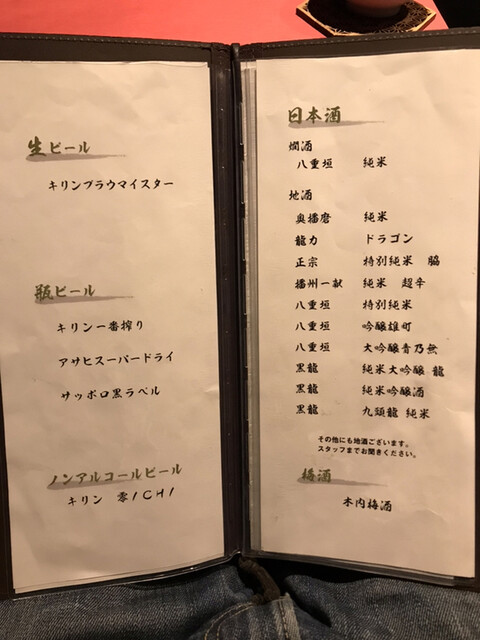 生ビール
キリンブラウマイスター
瓶ビール
キリン一番搾り
アサヒスーパードライ
サッポロ黒ラベル
ノンアルコールビール
キリン 零ICHI
日本酒
燗酒
八重垣 純米
地酒
奥播磨 純米
龍力 ドラゴン
正宗 特別純米 脇
播州一献 純米 超辛
八重垣 特別純米
八重垣 吟醸雄町
八重垣 大吟醸青乃無
黒龍 純米大吟醸 龍
黒龍 純米吟醸酒
黒龍 九頭龍 純米
その他にも地酒ございます。
スタッフまでお聞きください。
梅酒
木内梅酒